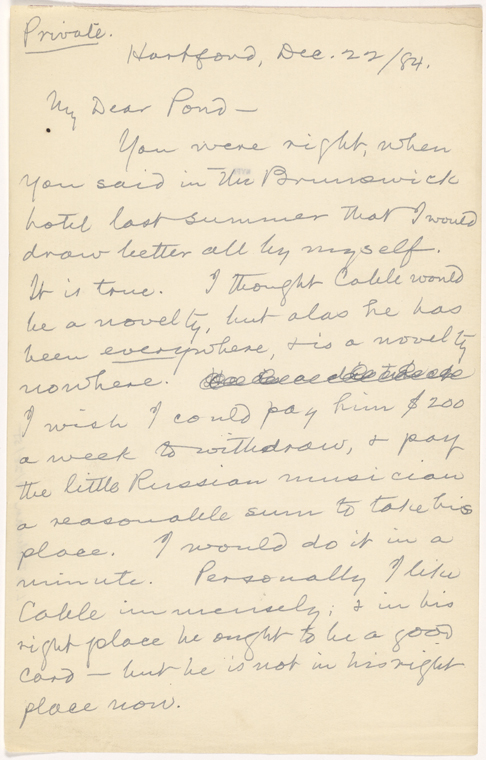 Private.
Hartford, Dec. 22/84.
My Dear Pond—
You were right, when
you said in the Brunswick
hotel last summer that I would
draw better all by myself.
It is true. I thought Cable would
be a novelty, but alas he has
been everywhere, & is a novelty
nowhere.
I wish I could pay him $200
a week to withdraw, & pay
the little Russian musician
a reasonable sum to take his
place. I would do it in a
minute. Personally I like
Cable immensely; & in his
right place he ought to be a good
card — but he is not in his right
place now.